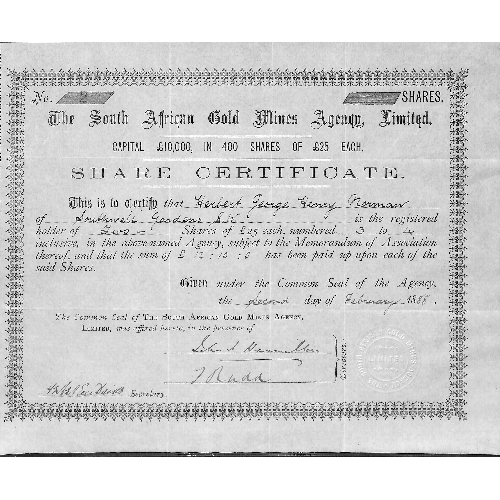 No. SHARES.
The South African Gold Mines Agency, Limited.
CAPITAL £10,000, IN 400 SHARES OF £25 EACH.
SHARE CERTIFICATE.
This is to Certify that Herbert George Henry Norman
of Southwell Gardens S.K. is the registered
holder of Two Shares of £25 each, numbered 3 to 4
inclusive, in the above-named Agency, subject to the Memorandum of Association
thereof, and that the sum of £12:10:0 has been paid up upon each of the
said Shares.
Given under the Common Seal of the Agency,
the Second day of February 1888.
The Common Seal of THE SOUTH AFRICAN GOLD MINES AGENCY,
LIMITED, was affixed hereto, in the presence of
Directors.
T Rudd
Secretary.